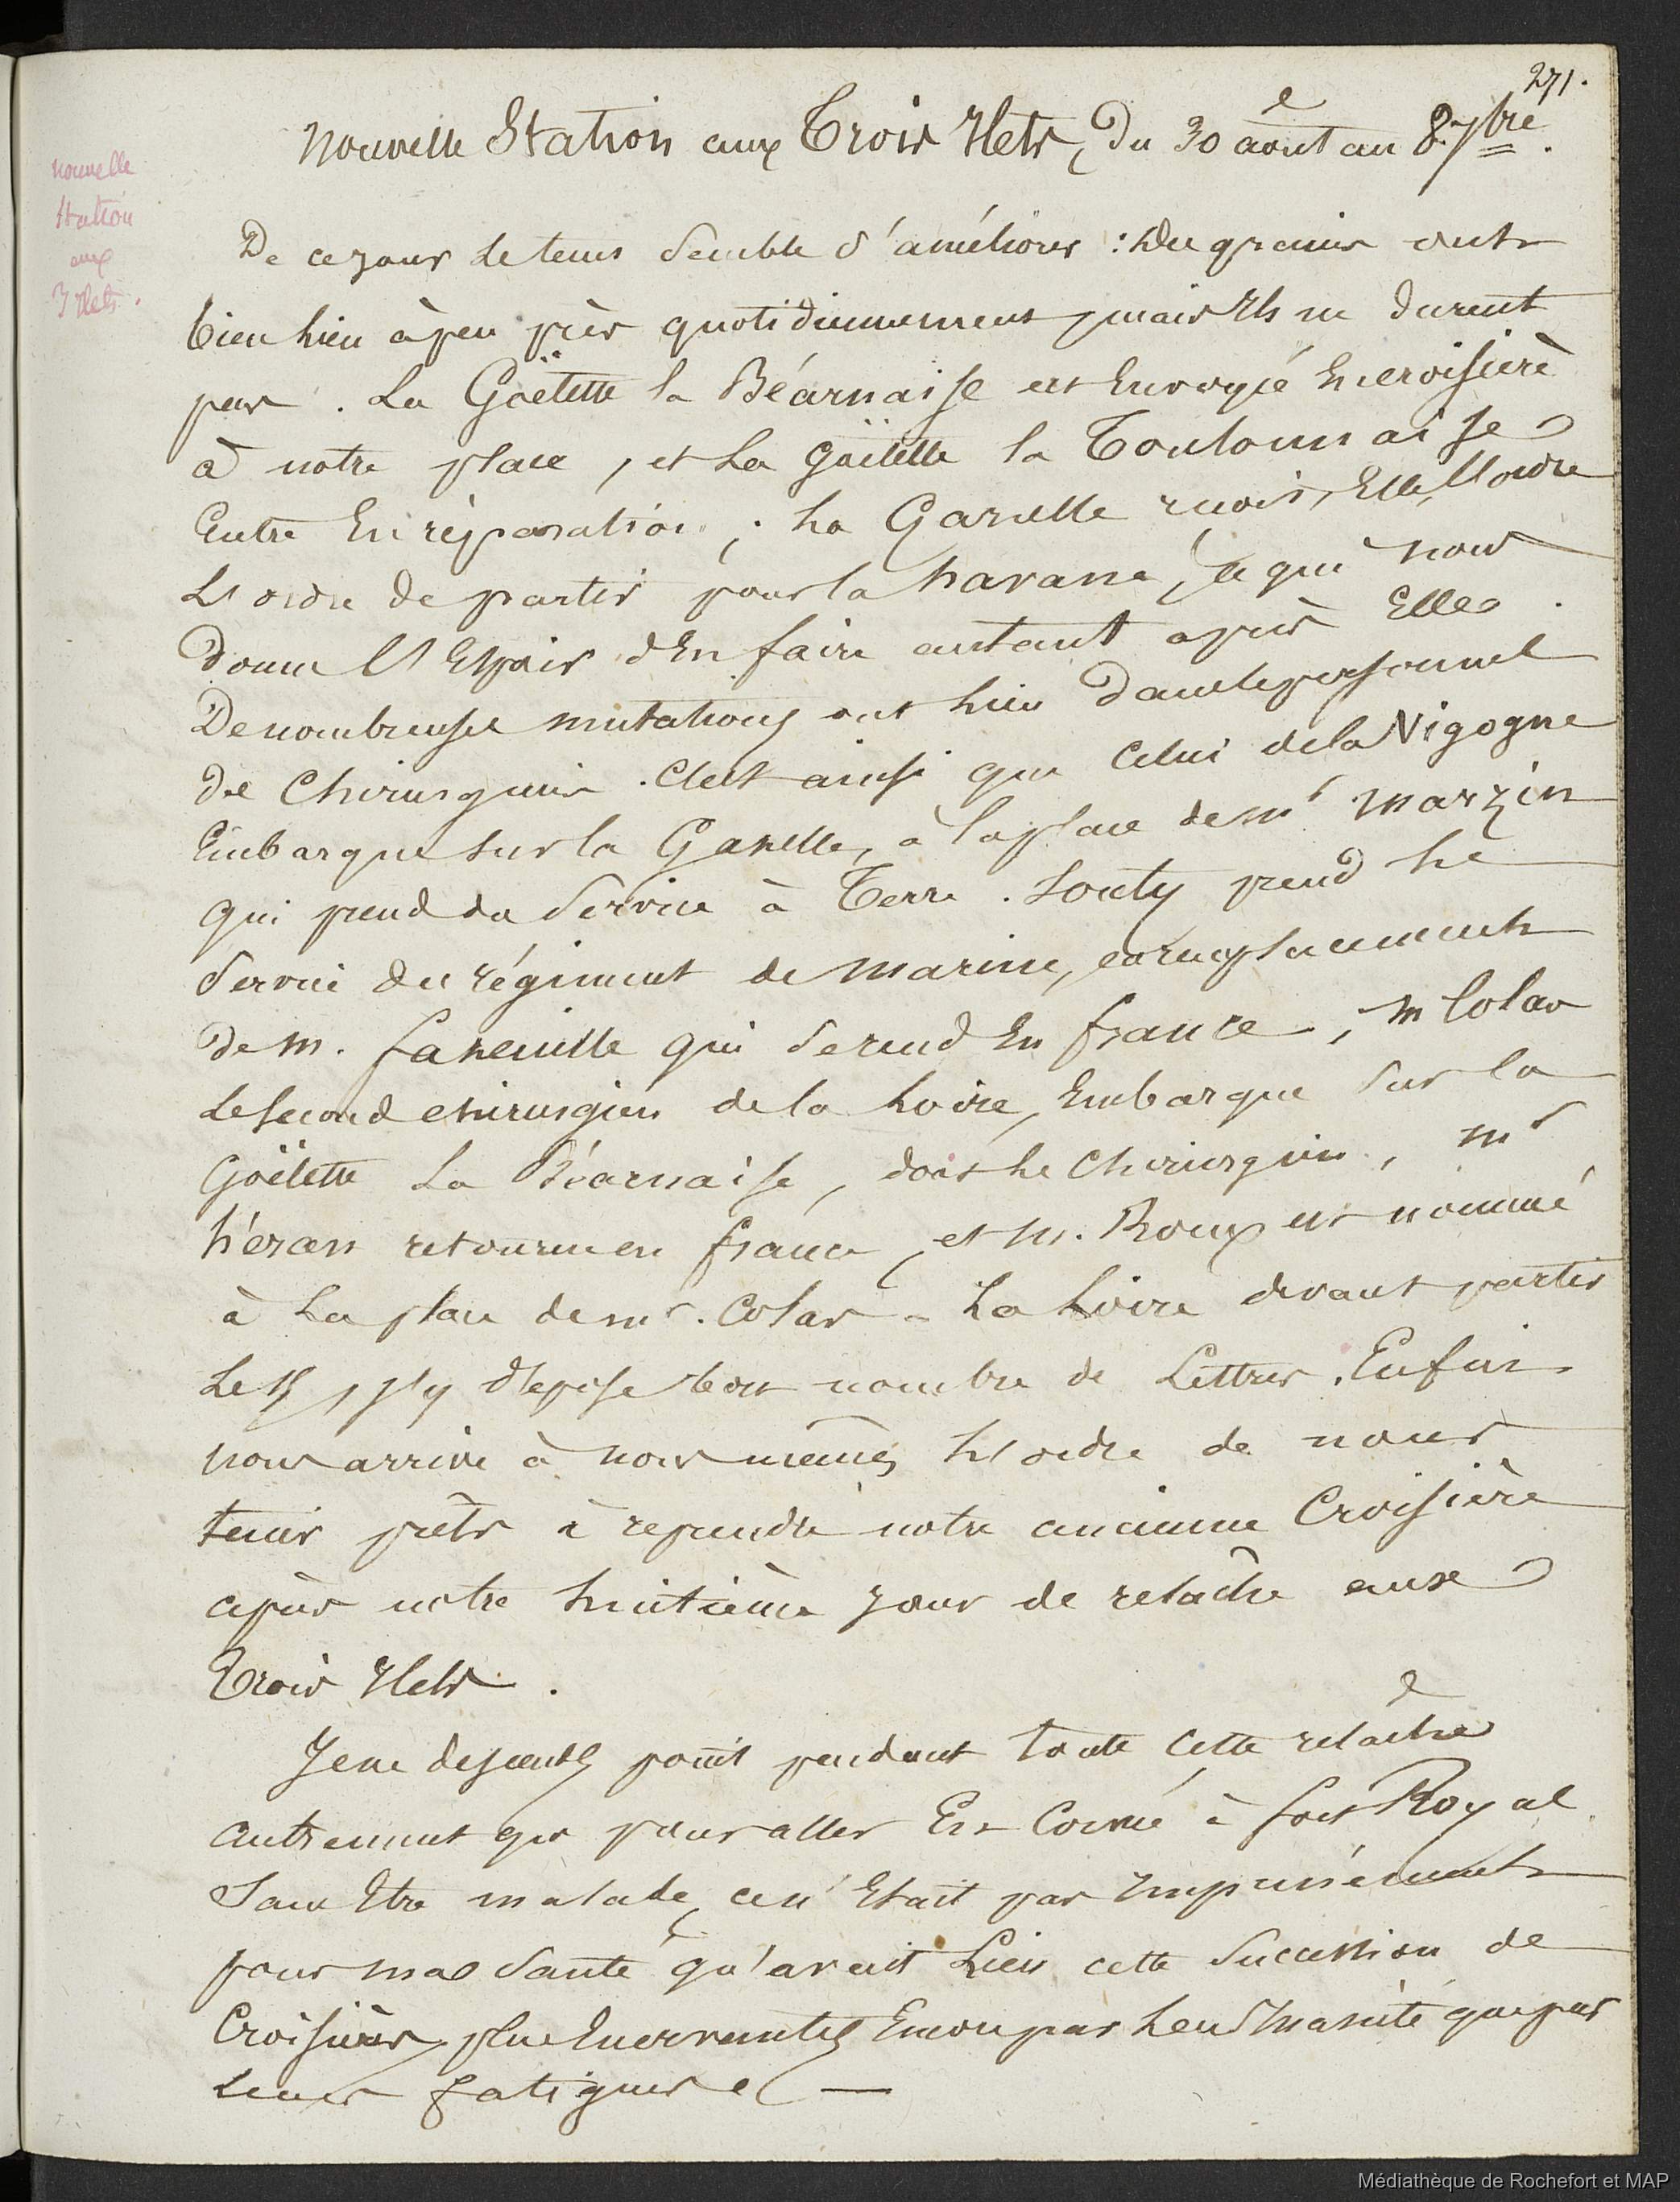 271.
Nouvelle Station aux Trois Ilets, Du 30 août au 8 7bre.
nouvelle
Station
aux
3 Ilets.
De ce jour le tems semble s'améliorer : Des grains ont
bien lieu à peu près quotidiennement, mais Ils ne durent
pas. La Goëlette la Béarnaise est Envoyé En croisière
à notre place, et La goëlette la Toulonnaise
Entre En réparation ; La Gazelle reçoit, Elle,
L'ordre de partir pour la havane, ce qui nous
Donne l'Espoir d'En faire autant après Elle.
De nombreuses mutations ont lieu dans le personnel
de Chirurgiens. C'est ainsi que Celui de la Vigogne
Embarque sur la Gazelle, à la place de Mr Marzin
qui prend du Service à Terre. Souty prend le
Service du régiment de Marine, en remplacement
de M. qui se rend En france, M Colas
Le second chirurgien de la Loire, Embarque sur la
Goëlette La Béarnaise, dont le Chirurgien, Mr
héran retourne en france, et M. Roux est nommé
à La place de Mr. Colas. La Loire devant partir
Le j'y dépose bon nombre de Lettres. Enfin
nous arrive à nous mêmes L'ordre de nous
tenir prêts à reprendre notre ancienne Croisière
après notre huitième jour de relâche aux
Trois Ilets.
Je ne descends point pendant toute cette relâche
autrement que pour aller En Corvée à fort Royal
Sans Etre malade, ce n'Etait pas Impunément
pour ma Santé qu'avait Lieu cette Succession de
Croisières, plus Enervantes Encore par que par
Leurs fatigues
Médiathèque de Rochefort et MAP